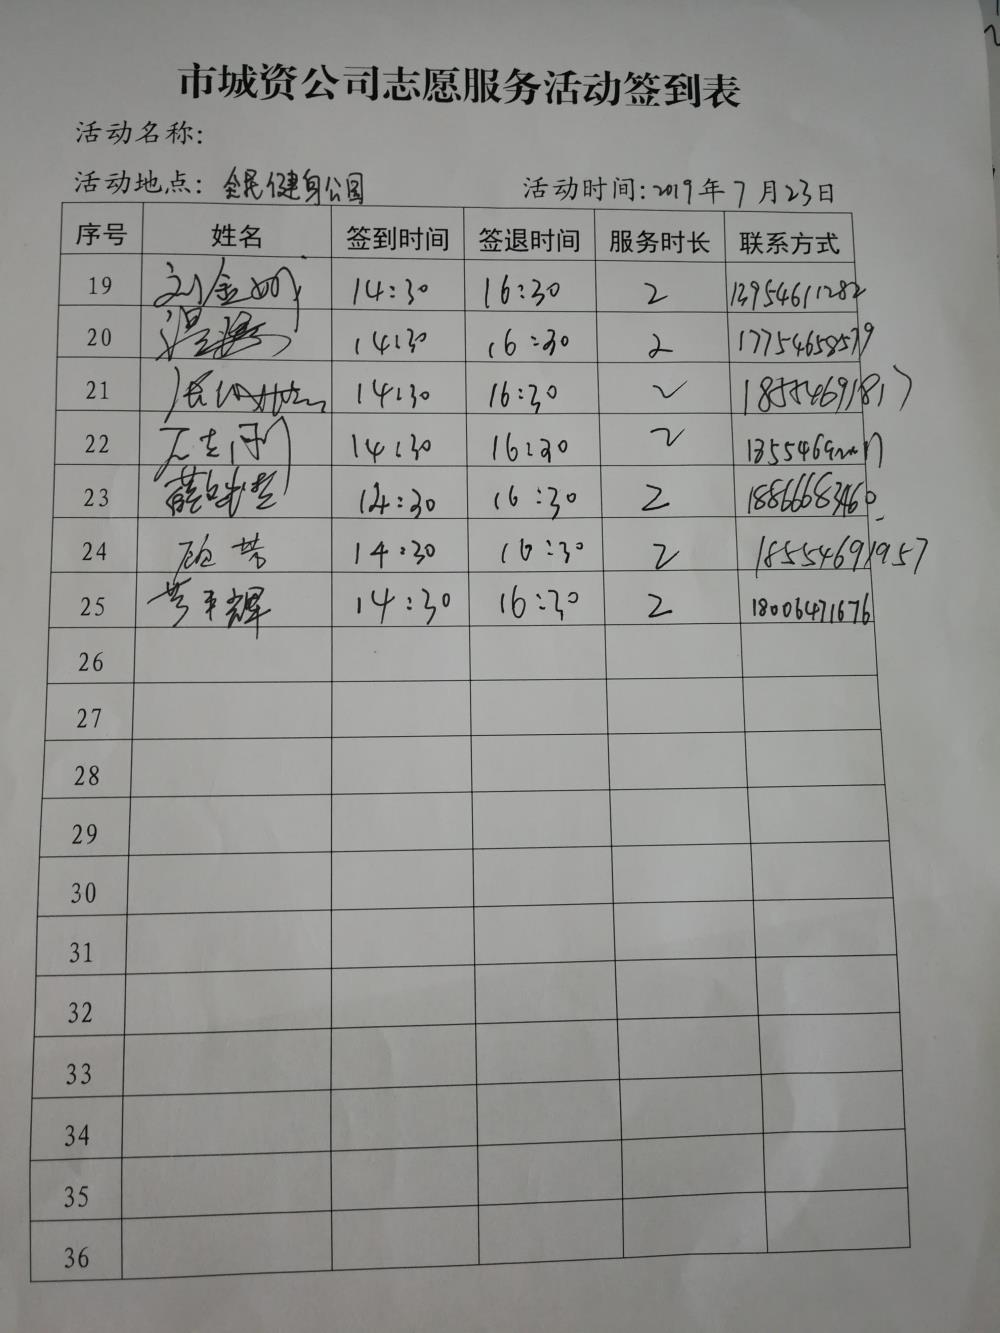 市城资公司志愿服务活动签到表
活动名称:
活动地点: 全民健身公园 活动时间:2019年7月23日
序号 姓名 签到时间 签退时间 服务时长 联系方式
19 14:30 16:30 2 13954611282
20 14:30 16:30 2 17754658579
21 14:30 16:30 2 18554691817
22 14:30 16:30 2
23 14:30 16:30 2 18866683460
24 14:30 16:30 2 18554691957
25 14:30 16:30 2 18006471676
26
27
28
29
30
31
32
33
34
35
36